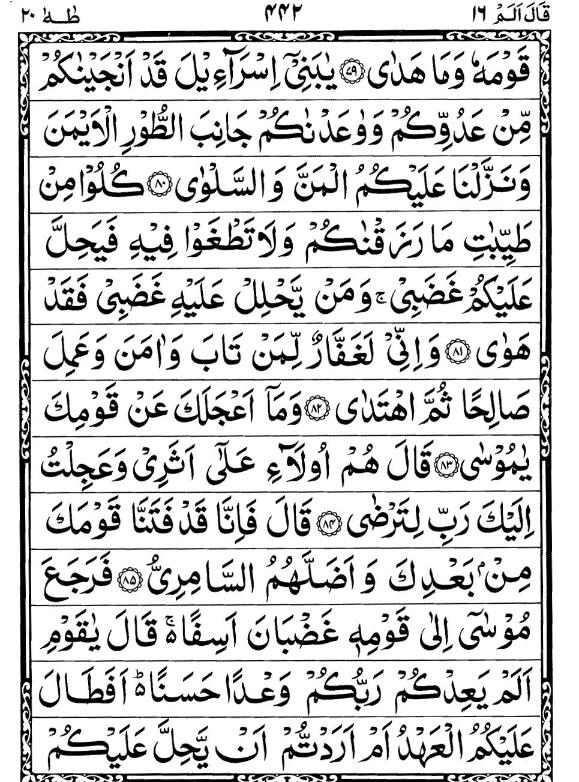 قَالَ اَلَمْ ١٦ ٤٤٢ طٰهٰ ٢٠
قَوْمَهٗ وَمَا هَدٰى ﴿٧٩﴾ يٰبَنِىْٓ اِسْرَآءِيْلَ قَدْ اَنْجَيْنٰكُمْ
مِّنْ عَدُوِّكُمْ وَوٰعَدْنٰكُمْ جَانِبَ الطُّوْرِ الْاَيْمَنَ
وَنَزَّلْنَا عَلَيْكُمُ الْمَنَّ وَالسَّلْوٰى ﴿٨٠﴾ كُلُوْا مِنْ
طَيِّبٰتِ مَا رَزَقْنٰكُمْ وَلَا تَطْغَوْا فِيْهِ فَيَحِلَّ
عَلَيْكُمْ غَضَبِىْ ۚ وَمَنْ يَّحْلِلْ عَلَيْهِ غَضَبِىْ فَقَدْ
هَوٰى ﴿٨١﴾ وَاِنِّىْ لَغَفَّارٌ لِّمَنْ تَابَ وَاٰمَنَ وَعَمِلَ
صَالِحًا ثُمَّ اهْتَدٰى ﴿٨٢﴾ وَمَآ اَعْجَلَكَ عَنْ قَوْمِكَ
يٰمُوْسٰى ﴿٨٣﴾ قَالَ هُمْ اُولَآءِ عَلٰٓى اَثَرِىْ وَعَجِلْتُ
اِلَيْكَ رَبِّ لِتَرْضٰى ﴿٨٤﴾ قَالَ فَاِنَّا قَدْ فَتَنَّا قَوْمَكَ
مِنْۢ بَعْدِكَ وَاَضَلَّهُمُ السَّامِرِىُّ ﴿٨٥﴾ فَرَجَعَ
مُوْسٰٓى اِلٰى قَوْمِهٖ غَضْبَانَ اَسِفًا ۚ قَالَ يٰقَوْمِ
اَلَمْ يَعِدْكُمْ رَبُّكُمْ وَعْدًا حَسَنًا ؕ اَفَطَالَ
عَلَيْكُمُ الْعَهْدُ اَمْ اَرَدْتُّمْ اَنْ يَّحِلَّ عَلَيْكُمْ